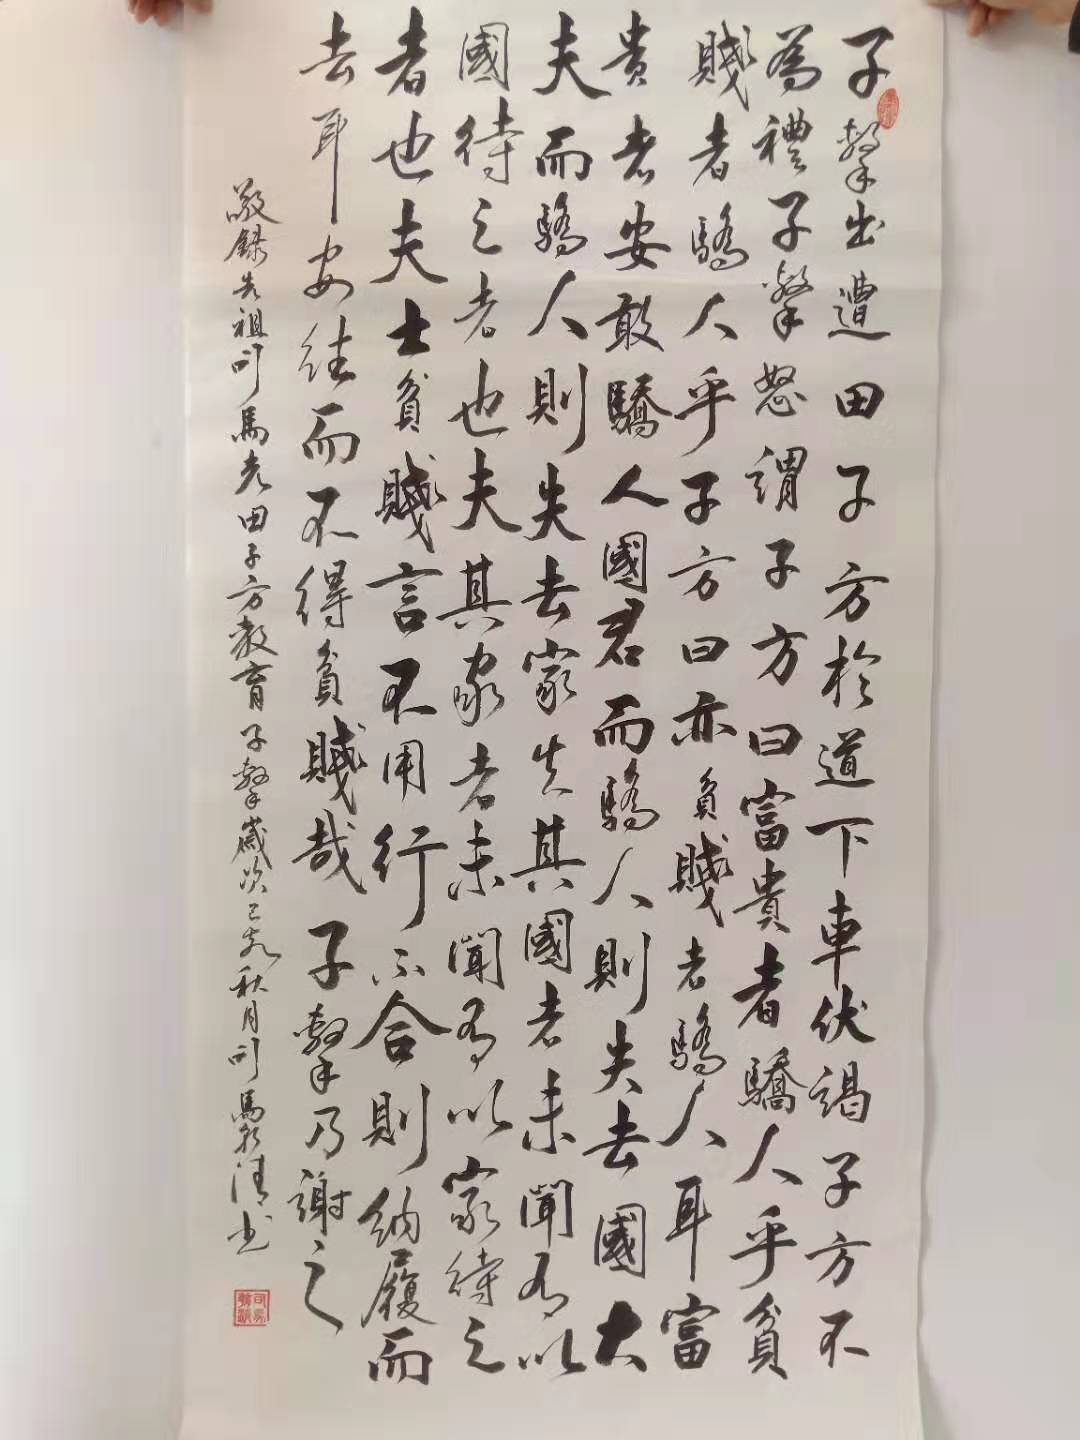 子擊出遭田子方於道下車伏謁子方不
為禮子擊怒謂子方曰富貴者驕人乎貧
賤者驕人乎子方曰亦貧賤者驕人耳富
貴者安敢驕人國君而驕人則失去國大
夫而驕人則失去家失其國者未聞有以
國待之者也夫其家者未聞有以家待之
者也夫士貧賤言不用行不合則納履而
去耳安往而不得貧賤哉子擊乃謝之
敬錄先祖司馬光田子方教育子擊歲次己亥秋月司馬清书